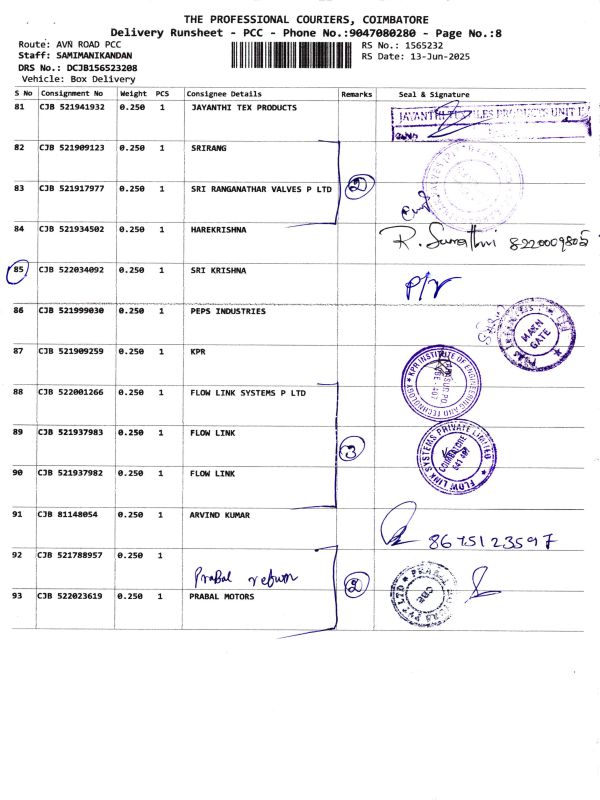 THE PROFESSIONAL COURIERS, COIMBATORE
Delivery Runsheet - PCC - Phone No.:9047080280 - Page No.:8
Route: AVN ROAD PCC
RS No.: 1565232
Staff: SAMIMANIKANDAN
RS Date: 13-Jun-2025
DRS No.: DCJB156523208
Vehicle: Box Delivery
S No Consignment No Weight PCS Consignee Details Remarks Seal & Signature
81 CJB 521941932 0.250 1 JAYANTHI TEX PRODUCTS
82 CJB 521909123 0.250 1 SRIRANG
2
83 CJB 521917977 0.250 1 SRI RANGANATHAR VALVES P LTD
84 CJB 521934502 0.250 1 HAREKRISHNA
R. Sumathi 8220009805
85 CJB 522034092 0.250 1 SRI KRISHNA
P/r
86 CJB 521999030 0.250 1 PEPS INDUSTRIES
MAIN GATE
87 CJB 521909259 0.250 1 KPR
KPR INSTITUTE OF ENGINEERING AND TECHNOLOGY
88 CJB 522001266 0.250 1 FLOW LINK SYSTEMS P LTD
89 CJB 521937983 0.250 1 FLOW LINK
3
FLOW LINK SYSTEMS PRIVATE LIMITED
COIMBATORE
90 CJB 521937982 0.250 1 FLOW LINK
91 CJB 81148054 0.250 1 ARVIND KUMAR
8675123597
92 CJB 521788957 0.250 1
Prabal return
2
93 CJB 522023619 0.250 1 PRABAL MOTORS
CBE